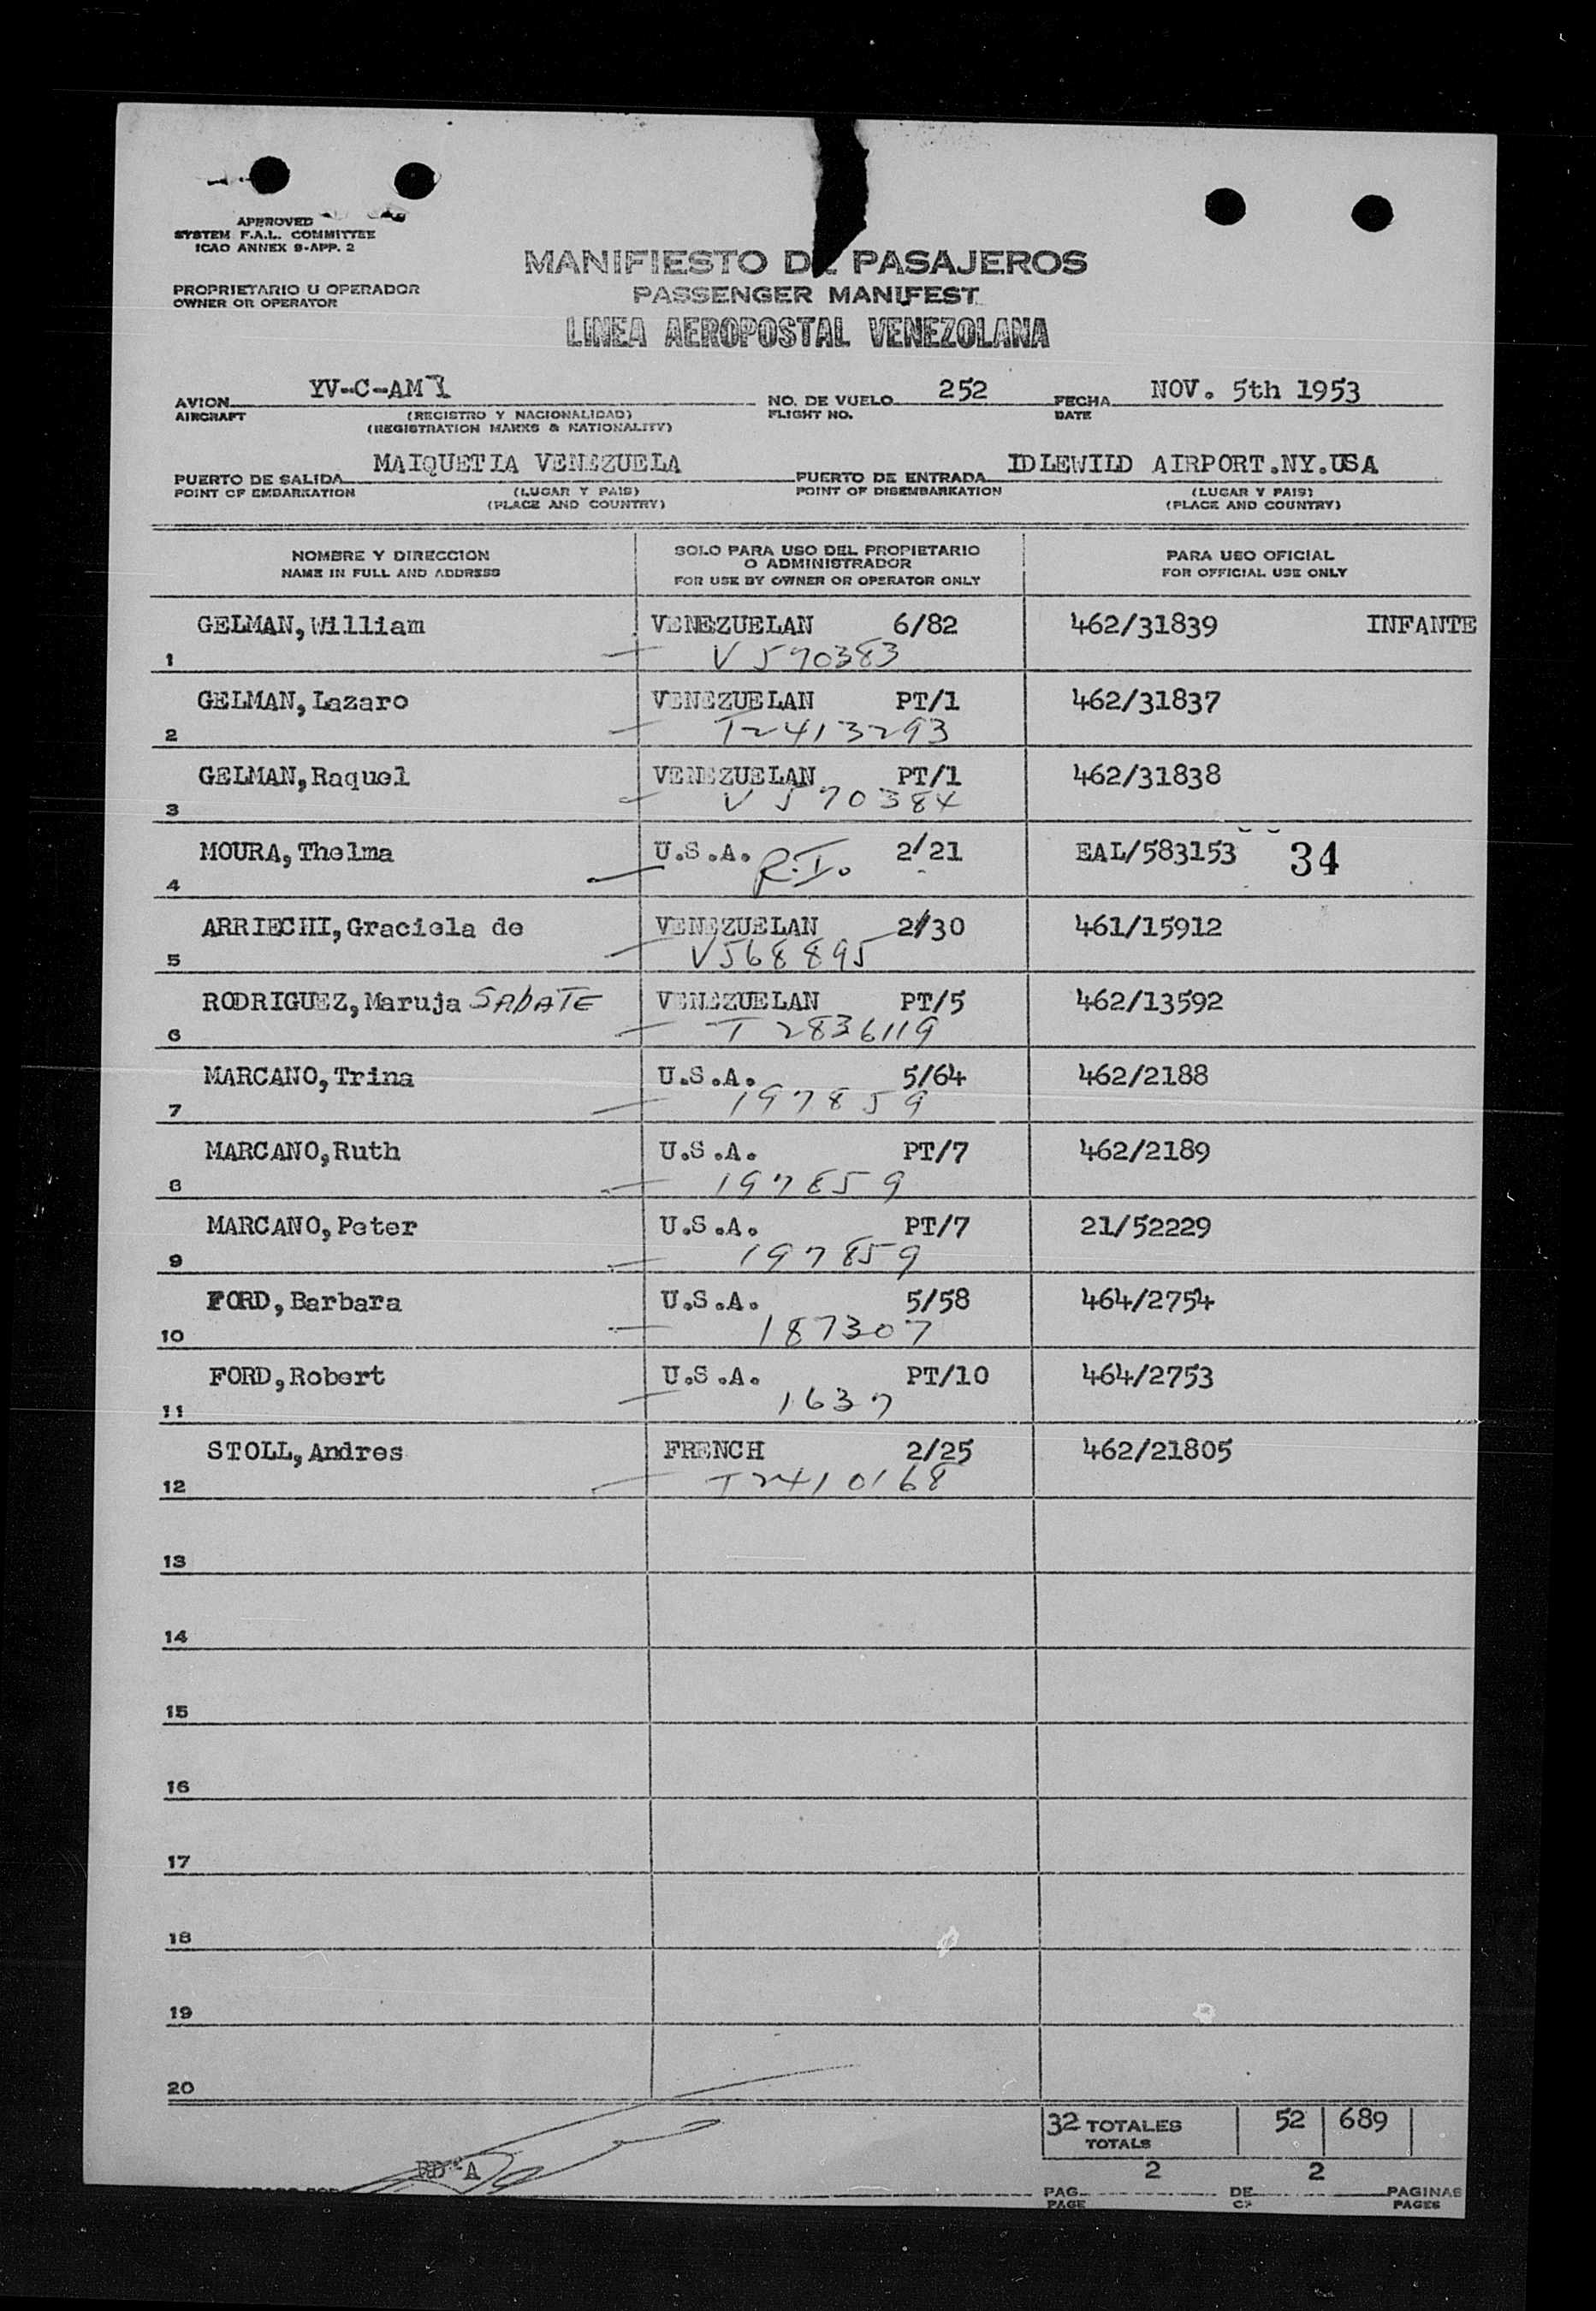 APPROVED
SYSTEM F.A.L. COMMITTEE
ICAO ANNEX 9-APP. 2
MANIFIESTO DE PASAJEROS
PROPRIETARIO U OPERADOR
OWNER OR OPERATOR
PASSENGER MANIFEST
LINEA AEROPOSTAL VENEZOLANA
AVION YV-C-AM NO. DE VUELO 252 FECHA NOV. 5th 1953
AIRCRAFT (REGISTRO Y NACIONALIDAD) FLIGHT NO. DATE
(REGISTRATION MARKS & NATIONALITY)
PUERTO DE SALIDA MAIQUETIA VENEZUELA PUERTO DE ENTRADA IDLEWILD AIRPORT.NY.USA
POINT OF EMBARKATION (LUGAR Y PAIS) POINT OF DISEMBARKATION (LUGAR Y PAIS)
(PLACE AND COUNTRY) (PLACE AND COUNTRY)
NOMBRE Y DIRECCION SOLO PARA USO DEL PROPIETARIO PARA USO OFICIAL
O ADMINISTRADOR
NAME IN FULL AND ADDRESS FOR USE BY OWNER OR OPERATOR ONLY FOR OFFICIAL USE ONLY
GELMAN, William VENEZUELAN 6/82 462/31839 INFANTE
1 V 570383
GELMAN, Lazaro VENEZUELAN PT/1 462/31837
2 T2413293
GELMAN, Raquel VENEZUELAN PT/1 462/31838
3 V 570384
MOURA, Thelma U.S.A. R.I. 2/21 EAL/583153 34
4
ARRIECHI, Graciela de VENEZUELAN 2/30 461/15912
5 V568895
RODRIGUEZ, Maruja SABATE VENEZUELAN PT/5 462/13592
6 T 2836119
MARCANO, Trina U.S.A. 5/64 462/2188
7 197859
MARCANO, Ruth U.S.A. PT/7 462/2189
8 197859
MARCANO, Peter U.S.A. PT/7 21/52229
9 197859
FORD, Barbara U.S.A. 5/58 464/2754
10 187307
FORD, Robert U.S.A. PT/10 464/2753
11 1637
STOLL, Andres FRENCH 2/25 462/21805
12 T2410168
13
14
15
16
17
18
19
20
32 TOTALES 52 689
TOTALS
2 2
PAG. DE PAGINAS
PAGE PAGES